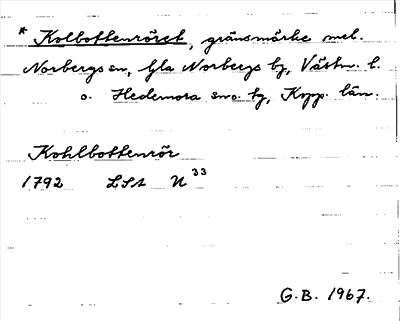 * Kolbottenröret, gränsmärke mel.
Norbergs sn, Gla Norbergs by, Västm. l.
o. Hedemora sn o. by, Kopp. län.
Kohlbottenrör
1792 LSA U 33
G.B. 1967.